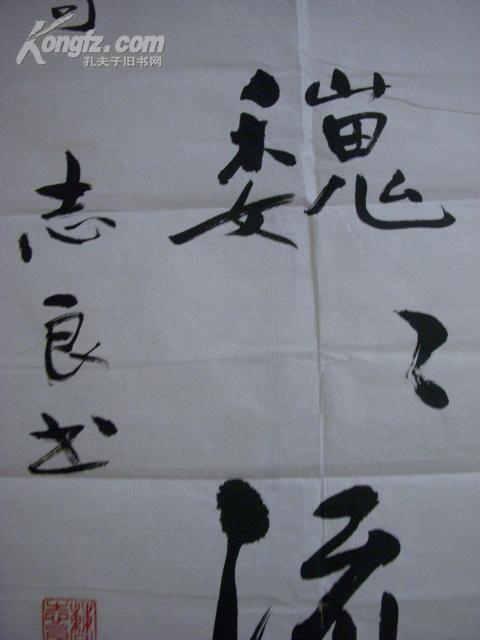 Kongfz.com
孔夫子旧书网
巍々流
志良书